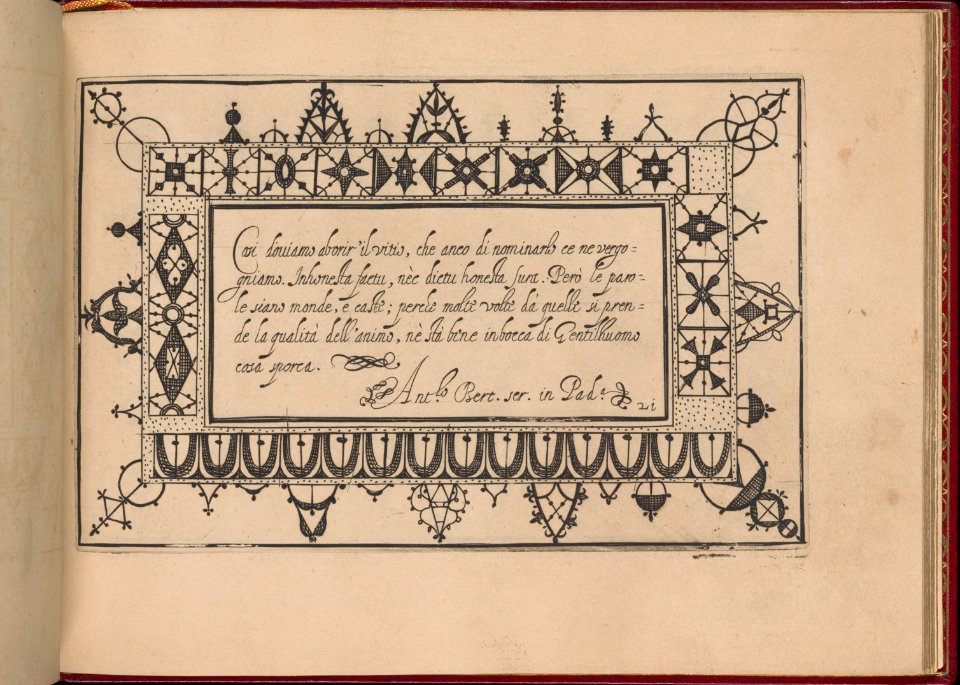 Così douiamo aborir' il vitio, che anco di nominarlo ce ne vergo=
gniamo. Inhonesta factu, nèc dictu honesta sunt. Però le paro=
le siano monde, e caste; perche molte volte da quelle si pren=
de la qualità dell'animo, nè stà bene in bocca di Gentilhuomo
cosa sporca.
Ant.lo Bert. ser. in Pad.a
21